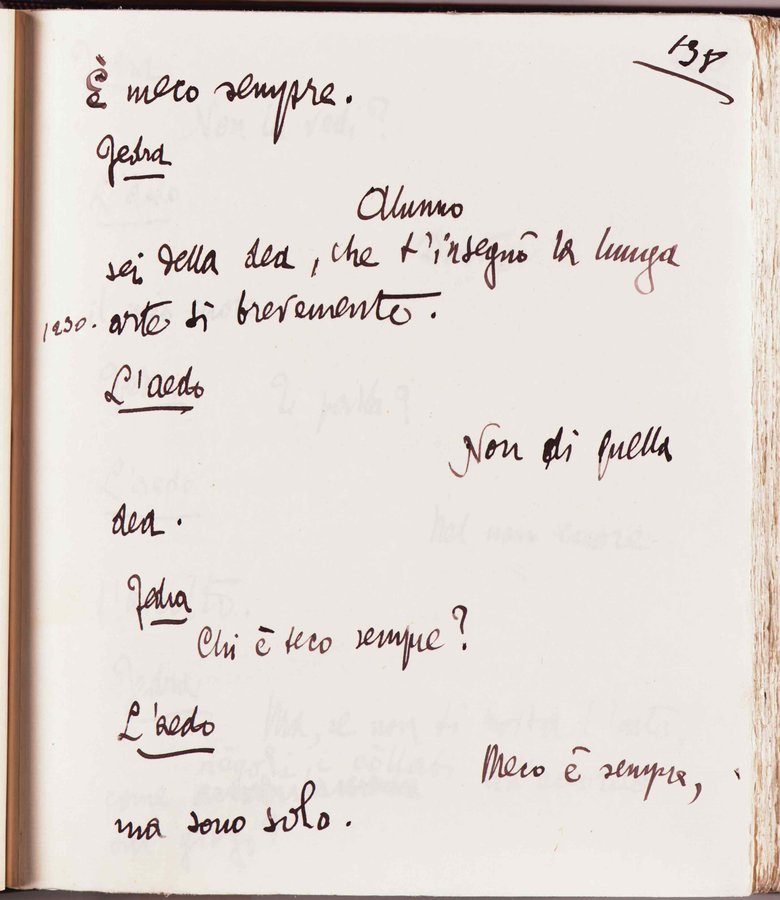 138
È meco sempre.
Fedra
Alunno
sei della dea, che t'insegnò la lunga
1230. arte sì brevemente.
L'aedo
Non di quella
dea.
Fedra
Chi è teco sempre?
L'aedo
Meco è sempre,
ma sono solo.